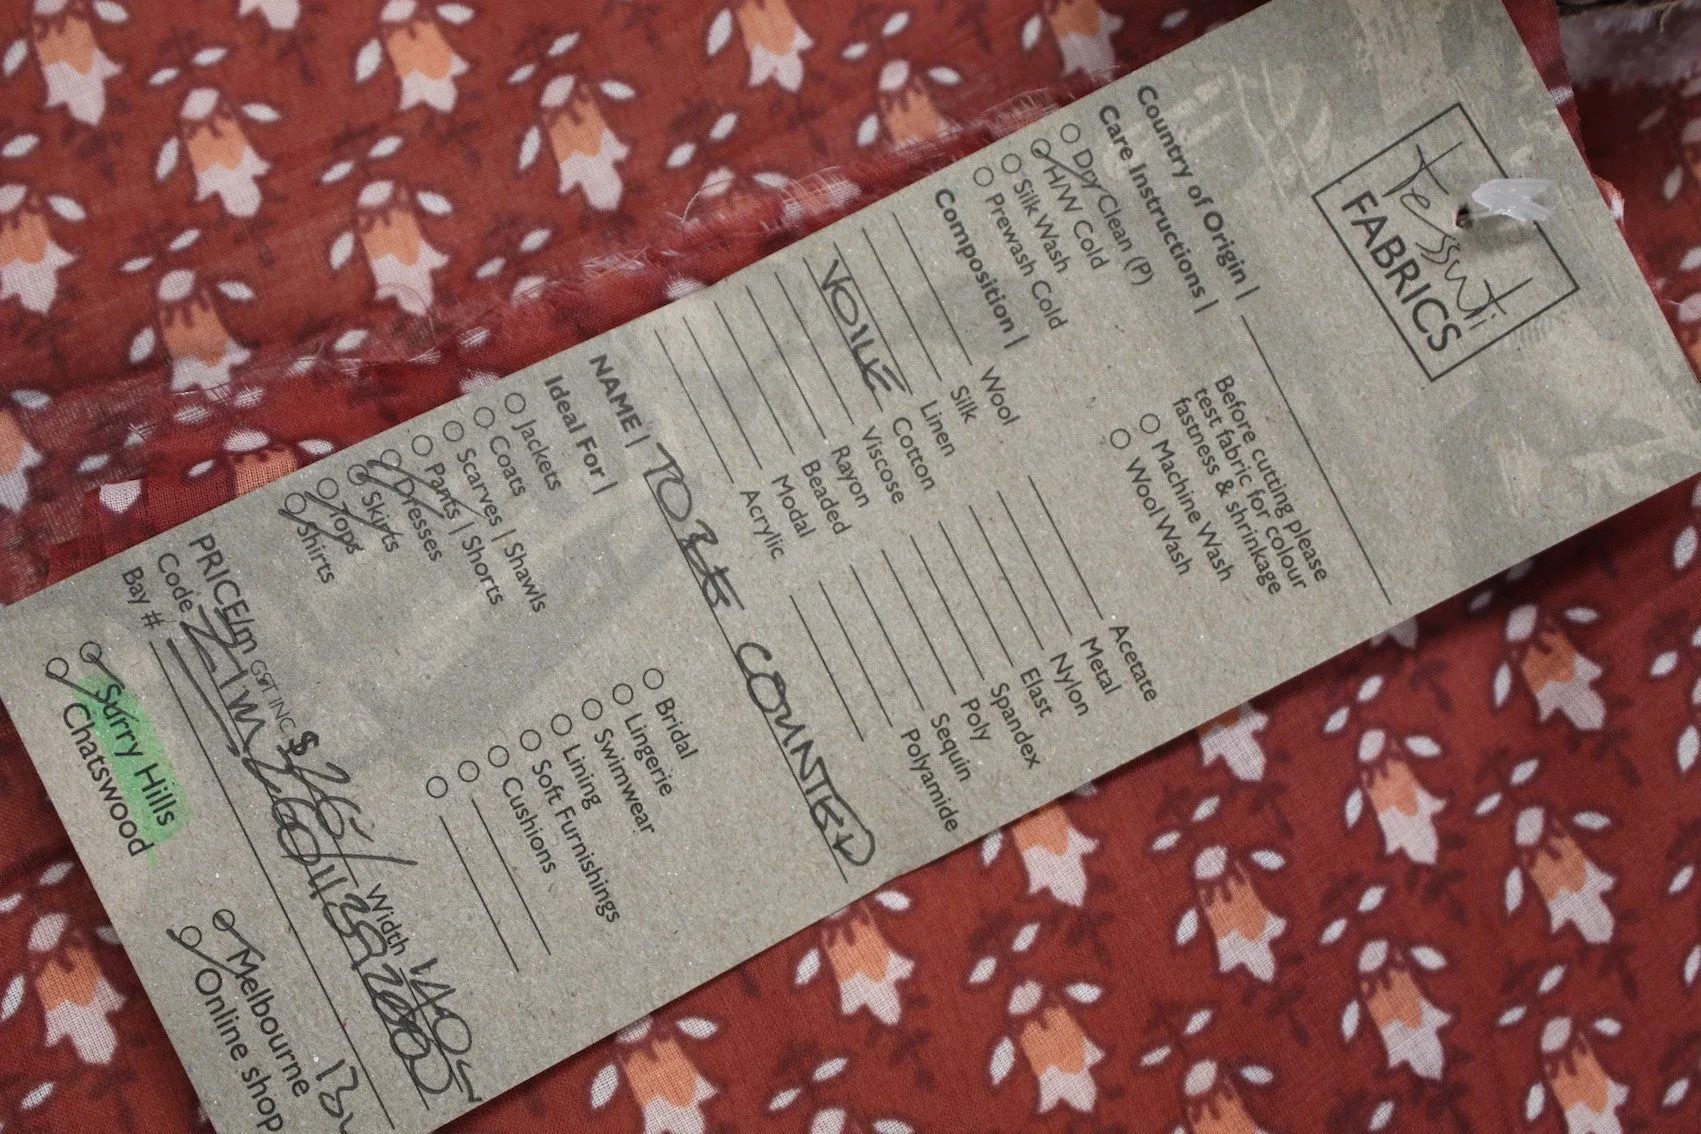 Tessuti
FABRICS
Country of Origin |
Care Instructions |
Dry Clean (P)
H/W Cold
Silk Wash
Prewash Cold
Before cutting please
test fabric for colour
fastness & shrinkage
Machine Wash
Wool Wash
Composition |
Wool
Silk
Linen
VOILE Cotton
Viscose
Rayon
Beaded
Modal
Acrylic
Acetate
Metal
Nylon
Elast
Spandex
Poly
Sequin
Polyamide
NAME | TO BE COUNTED
Ideal For |
Jackets
Coats
Scarves | Shawls
Pants | Shorts
Dresses
Skirts
Tops
Shirts
Bridal
Lingerie
Swimwear
Lining
Soft Furnishings
Cushions
PRICE/m GST INC. $26·/ Width 140
Code
Bay #
Surry Hills
Chatswood
Melbourne
Online shop